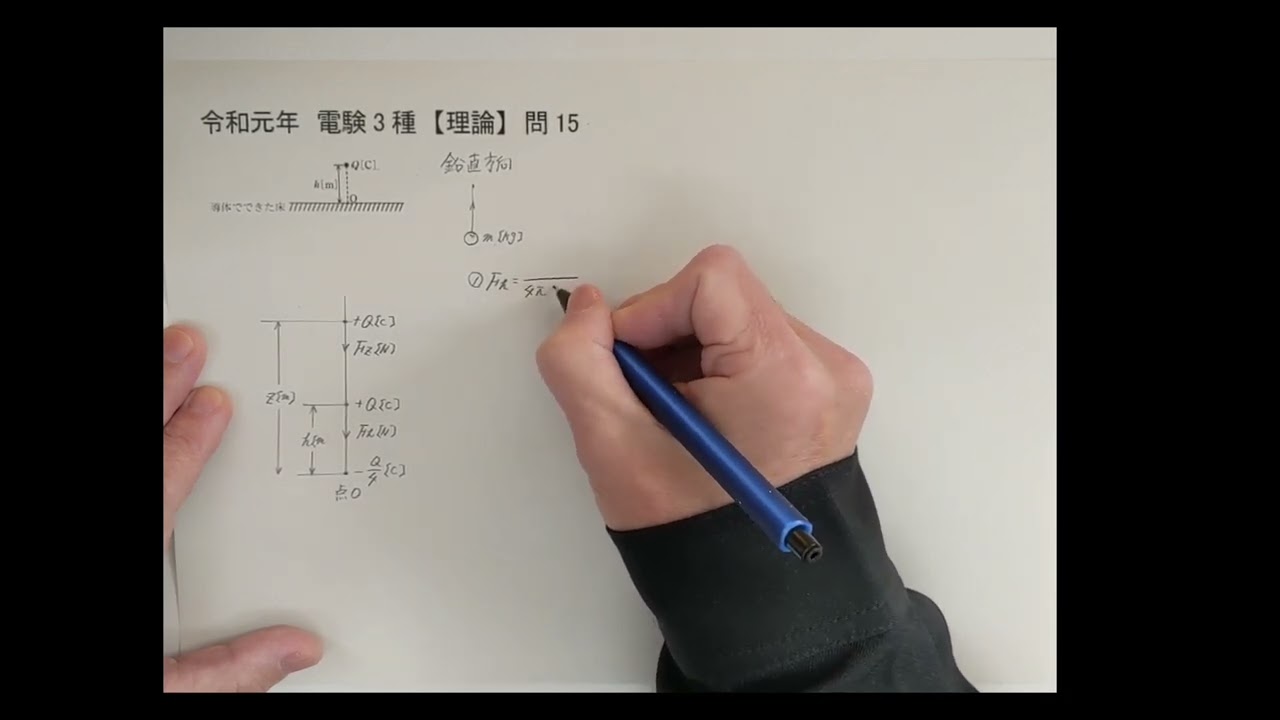 令和元年 電験3種【理論】 問15
Q[C]
h[m]
O
導体でできた床
鉛直方向
m[kg]
① Fh =
4π
+Q[C]
Fz[N]
z[m]
+Q[C]
Fh[N]
h[m
- Q/4 [C]
点O